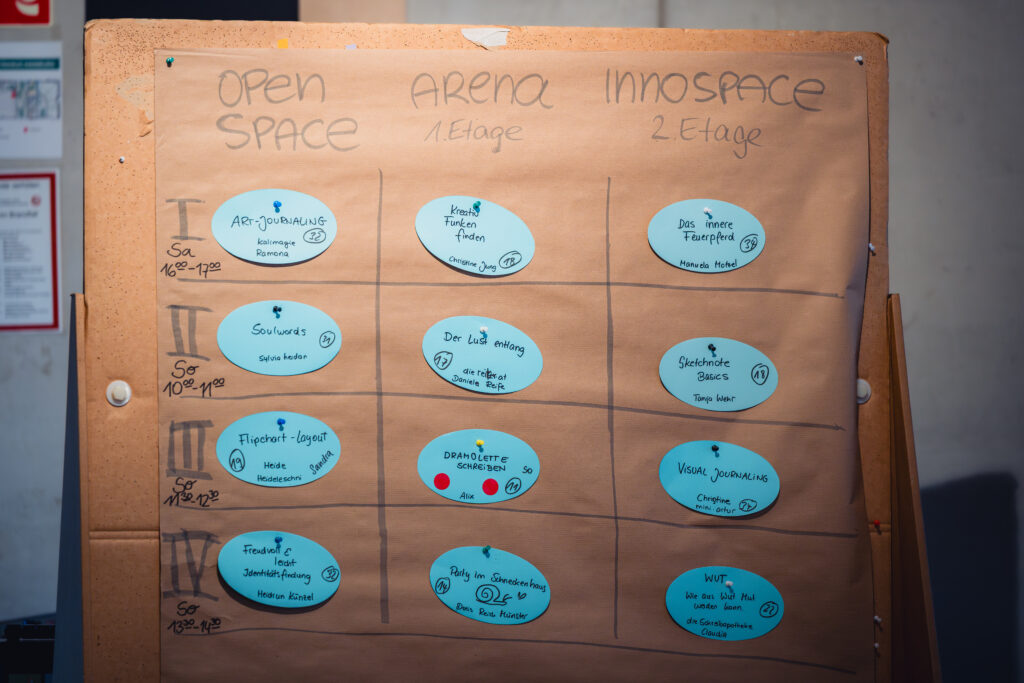 OPen
SPACE
ARENA
1. Etage
INNOSPACE
2. Etage
I
Sa
16⁰⁰-17⁰⁰
ART-JOURNALING
kalimagie
Ramona
32
Kreativ
Funken
finden
Christine Jung
18
Das innere
Feuerpferd
34
Manuela
II
So
10⁰⁰-11⁰⁰
Soulwords
31
Sylvia
Der Lust entlang
17
Daniela
Sketchnote
Basics
18
Tanja Wehr
III
So
11³⁰-12³⁰
Flipchart-Layout
19
Heide
Heideleschni
Sandra
DRAMOLETTE
SCHREIBEN
So
11
Alix
VISUAL JOURNALING
Christine
24
IV
So
13³⁰-14³⁰
Freudvoll &
leicht
Identitätsfindung
32
Heidrun Künzel
Party im Schneckenhaus
14
Doris Reich Münster
WUT
Wie aus Wut Mut
werden kann.
22
die Schreibapotheke
Claudia